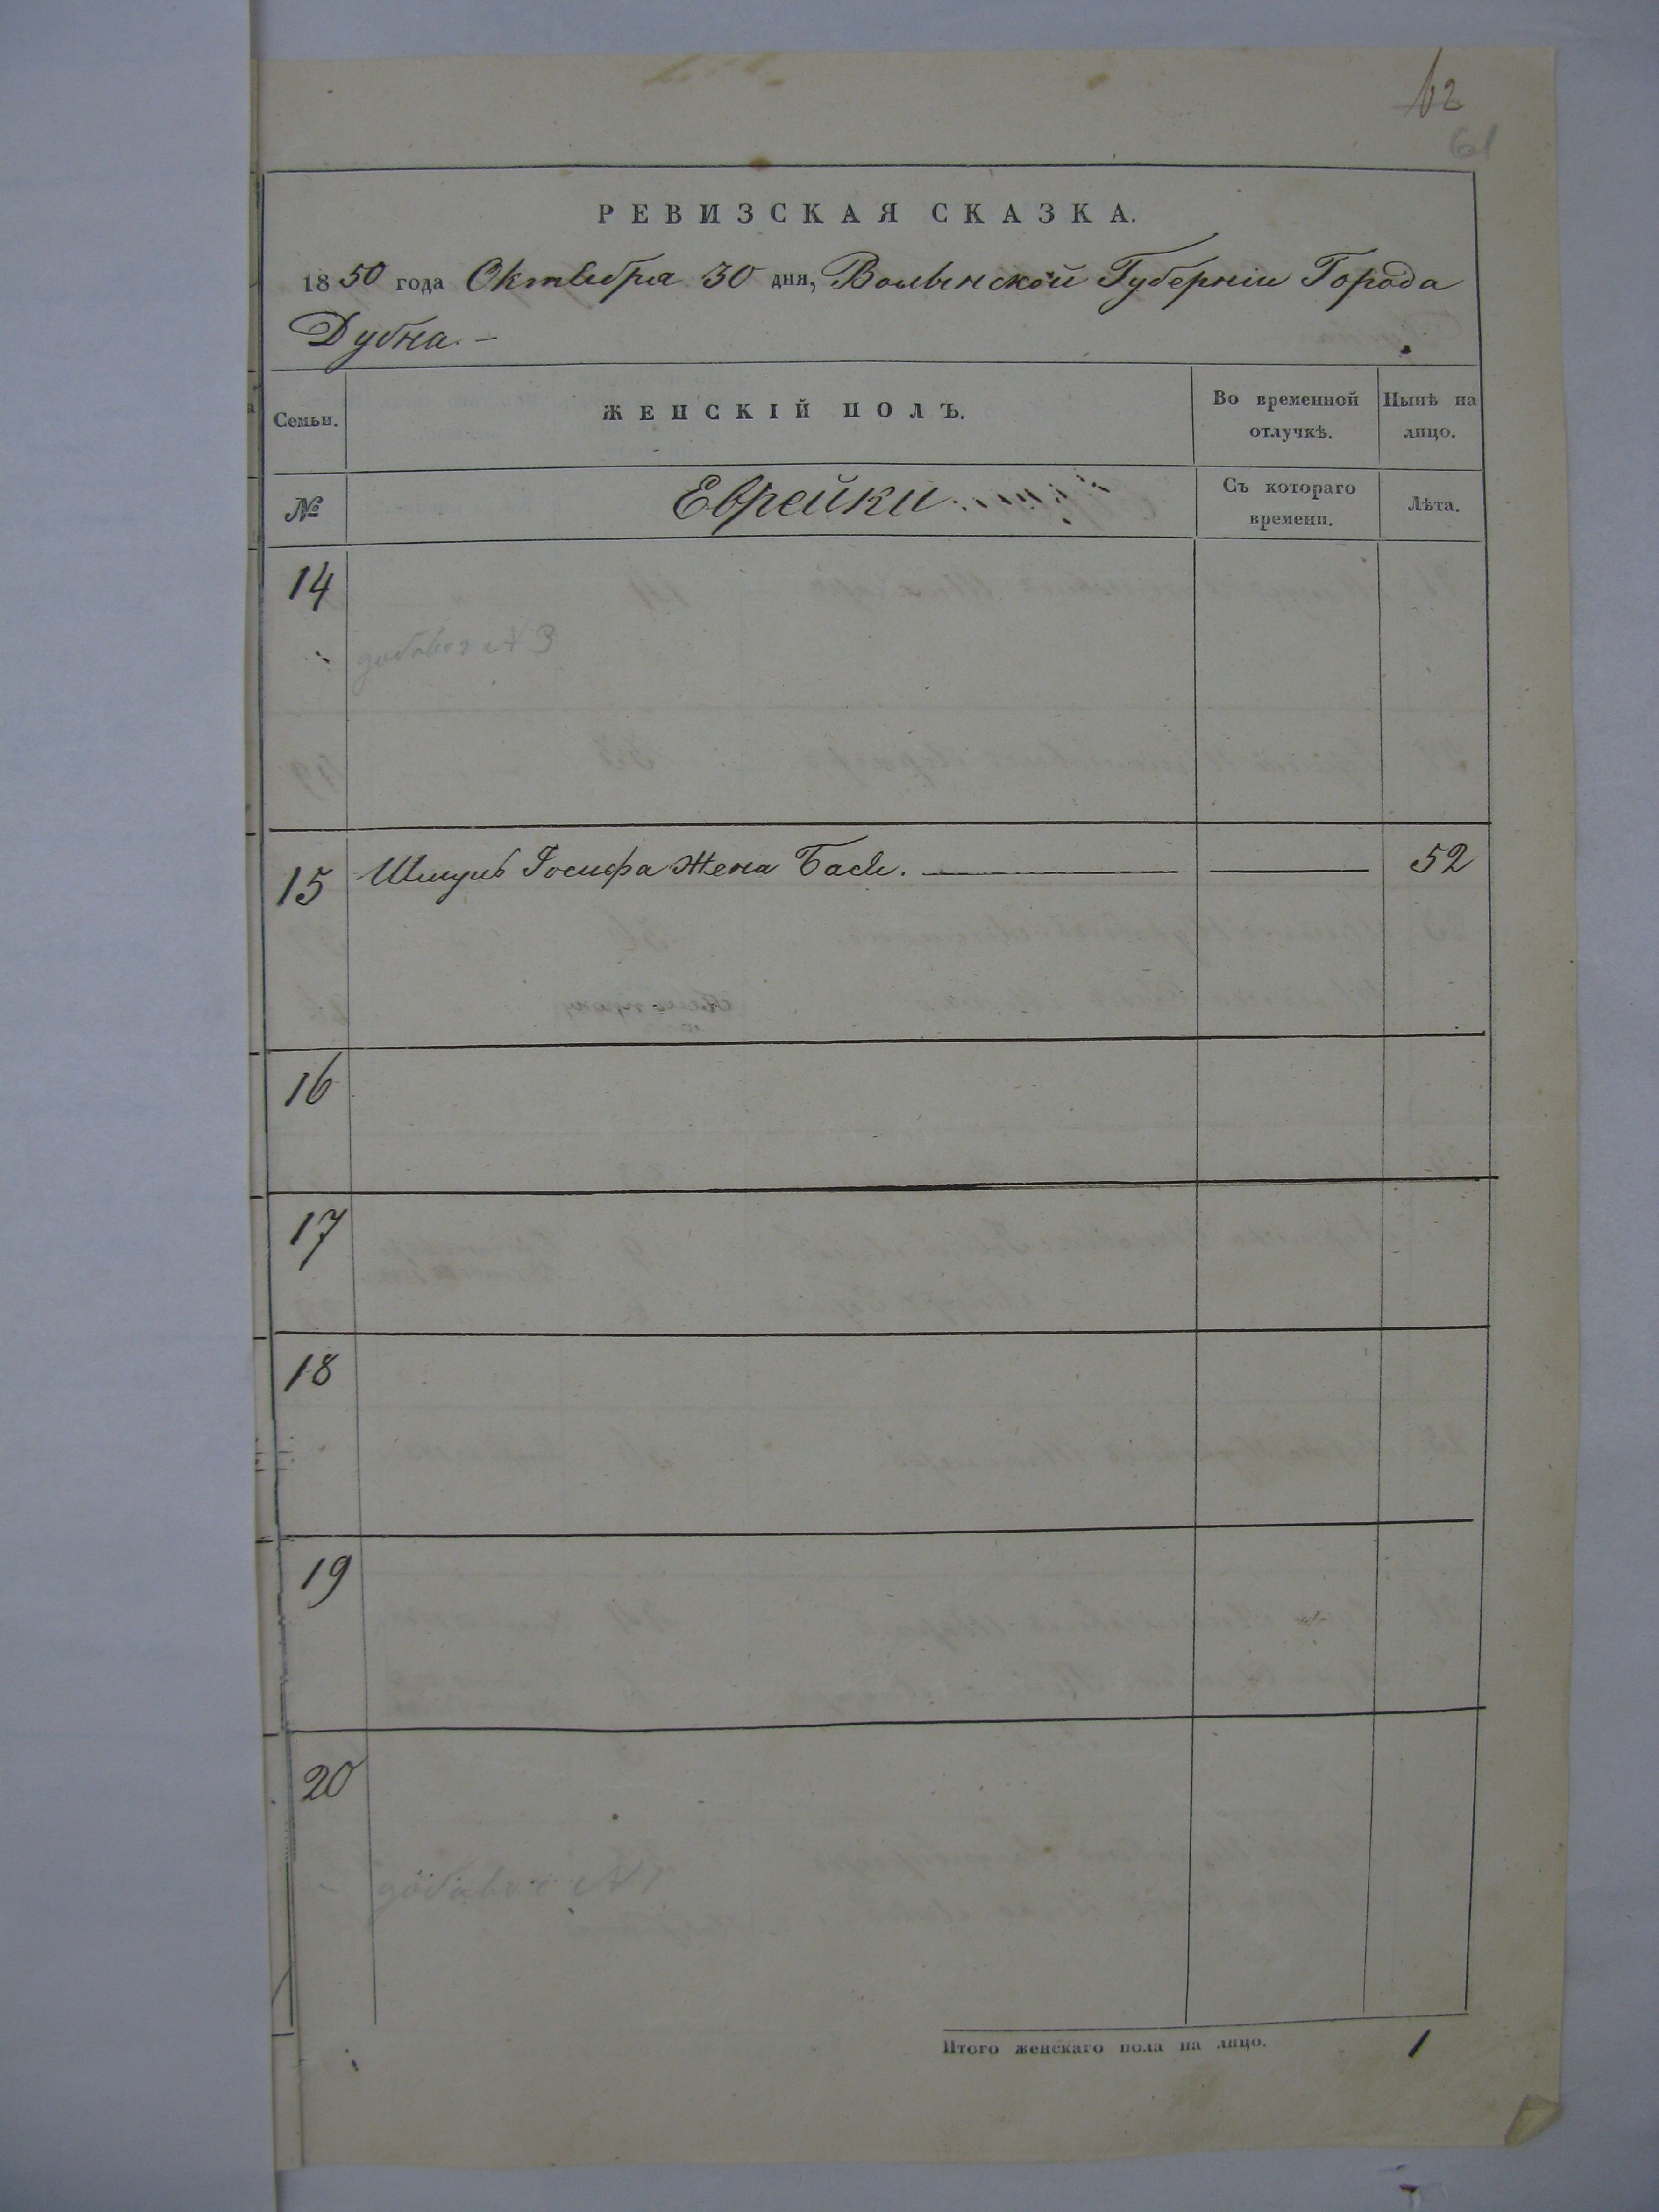 62
61
РЕВИЗСКАЯ СКАЗКА.
1850 года Октября 30 дня, Волынской Губерніи Города
Дубна. —
Семьи.
ЖЕНСКІЙ ПОЛЪ.
Во временной отлучкѣ.
Нынѣ на лицо.
№
Еврейки
Съ котораго времени.
Лѣта.
14
добавоч № 3
15 Шмуль Іосифа жена Бася. 52
16
17
18
19
20
добавоч №
Итого женскаго пола на лицо. 1